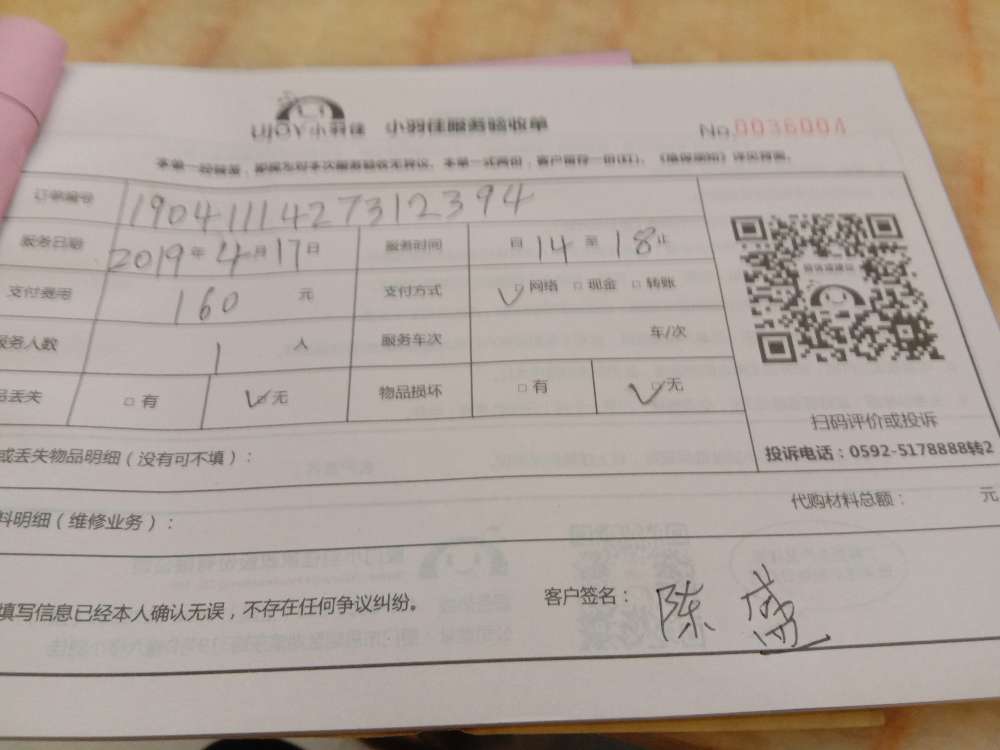 UJOY小羽佳 小羽佳服务验收单 No.0036004
本单一经签署，即视为对本次服务验收无异议。本单一式两份，客户留存一份(红)。
订单编号 1904111427312394
服务日期 2019年4月17日 服务时间 自14至18止
支付费用 160元 支付方式 ✓□网络 □现金 □转账
服务人数 1人 服务车次 车/次
品丢失 □有 ✓□无 物品损坏 □有 ✓□无
扫码评价或投诉
投诉电话：0592-5178888转2
或丢失物品明细（没有可不填）：
代购材料总额： 元
料明细（维修业务）：
填写信息已经本人确认无误，不存在任何争议纠纷。
客户签名：陈